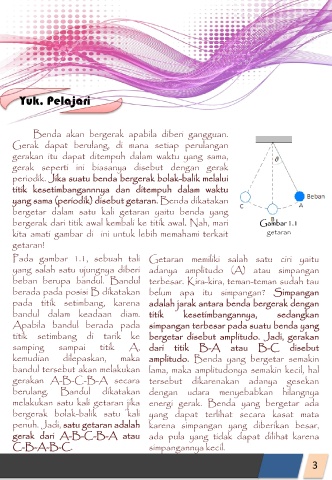 Yuk. Pelajari
Benda akan bergerak apabila diberi gangguan.
Gerak dapat berulang, di mana setiap perulangan
gerakan itu dapat ditempuh dalam waktu yang sama,
gerak seperti ini biasanya disebut dengan gerak
periodik. Jika suatu benda bergerak bolak-balik melalui
titik kesetimbangannnya dan ditempuh dalam waktu
yang sama (periodik) disebut getaran. Benda dikatakan
bergetar dalam satu kali getaran yaitu benda yang
bergerak dari titik awal kembali ke titik awal. Nah, mari
kita amati gambar di ini untuk lebih memahami terkait
getaran!
θ
Beban
C
A
B
Gambar 1.1
getaran
Pada gambar 1.1, sebuah tali
yang salah satu ujungnya diberi
beban berupa bandul. Bandul
berada pada posisi B dikatakan
pada titik setimbang, karena
bandul dalam keadaan diam.
Apabila bandul berada pada
titik setimbang di tarik ke
samping sampai titik A,
kemudian dilepaskan, maka
bandul tersebut akan melakukan
gerakan A-B-C-B-A secara
berulang. Bandul dikatakan
melakukan satu kali getaran jika
bergerak bolak-balik satu kali
penuh. Jadi, satu getaran adalah
gerak dari A-B-C-B-A atau
C-B-A-B-C.
Getaran memiliki salah satu ciri yaitu
adanya amplitudo (A) atau simpangan
terbesar. Kira-kira, teman-teman sudah tau
belum apa itu simpangan? Simpangan
adalah jarak antara benda bergerak dengan
titik kesetimbangannya, sedangkan
simpangan terbesar pada suatu benda yang
bergetar disebut amplitudo. Jadi, gerakan
dari titik B-A atau B-C disebut
amplitudo. Benda yang bergetar semakin
lama, maka amplitudonya semakin kecil, hal
tersebut dikarenakan adanya gesekan
dengan udara menyebabkan hilangnya
energi gerak. Benda yang bergetar ada
yang dapat terlihat secara kasat mata
karena simpangan yang diberikan besar,
ada pula yang tidak dapat dilihat karena
simpangannya kecil.
3